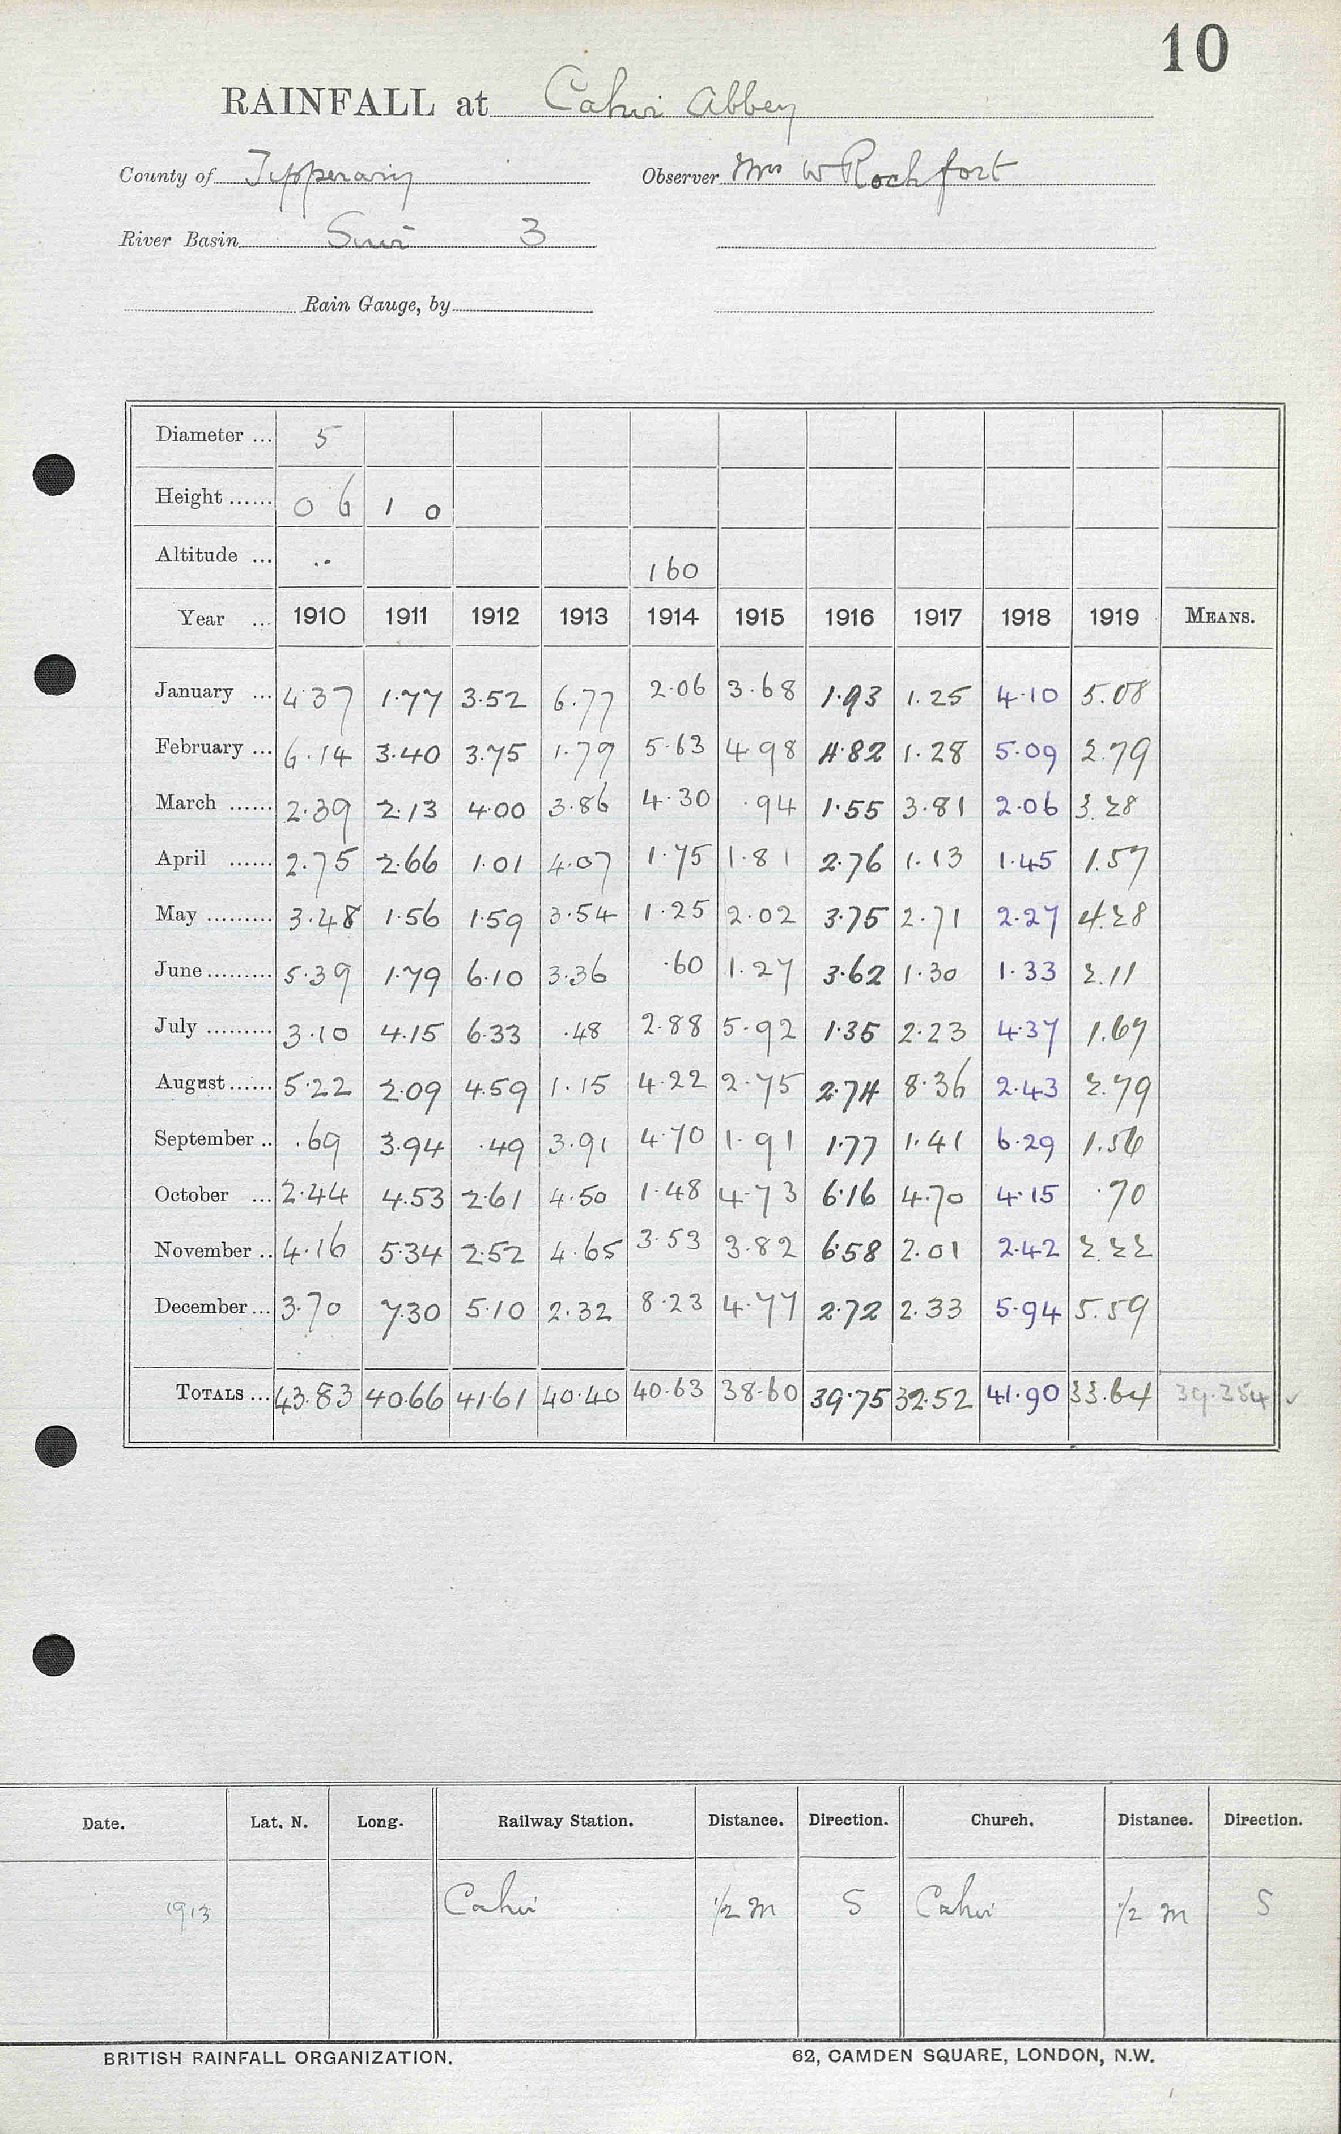 10
RAINFALL at Cahir Abbey
County of Tipperary Observer Mrs W Rochfort
River Basin Suir 3
Rain Gauge, by
Diameter ... 5
Height ...... 0 6 1 0
Altitude ... .. 160
Year ... 1910 1911 1912 1913 1914 1915 1916 1917 1918 1919 MEANS.
January ... 4.37 1.77 3.52 6.77 2.06 3.68 1.93 1.25 4.10 5.08
February ... 6.14 3.40 3.75 1.79 5.63 4.98 4.82 1.28 5.09 2.79
March ...... 2.39 2.13 4.00 3.86 4.30 .94 1.55 3.81 2.06 3.28
April ...... 2.75 2.66 1.01 4.07 1.75 1.81 2.76 1.13 1.45 1.57
May ......... 3.48 1.56 1.59 3.54 1.25 2.02 3.75 2.71 2.27 4.28
June ......... 5.39 1.79 6.10 3.36 .60 1.27 3.62 1.30 1.33 2.11
July ......... 3.10 4.15 6.33 .48 2.88 5.92 1.35 2.23 4.37 1.67
August ...... 5.22 2.09 4.59 1.15 4.22 2.75 2.74 8.36 2.43 2.79
September .. .69 3.94 .49 3.91 4.70 1.91 1.77 1.41 6.29 1.56
October ... 2.44 4.53 2.61 4.50 1.48 4.73 6.16 4.70 4.15 .70
November .. 4.16 5.34 2.52 4.65 3.53 3.82 6.58 2.01 2.42 2.22
December ... 3.70 7.30 5.10 2.32 8.23 4.77 2.72 2.33 5.94 5.59
TOTALS ... 43.83 40.66 41.61 40.40 40.63 38.60 39.75 32.52 41.90 33.64 39.354 ✓
Date. Lat. N. Long. Railway Station. Distance. Direction. Church. Distance. Direction.
1913 Cahir 1/2 m S Cahir 1/2 m S
BRITISH RAINFALL ORGANIZATION. 62, CAMDEN SQUARE, LONDON, N.W.